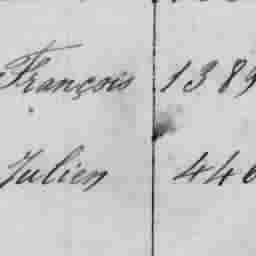 François 1389
Julien 446